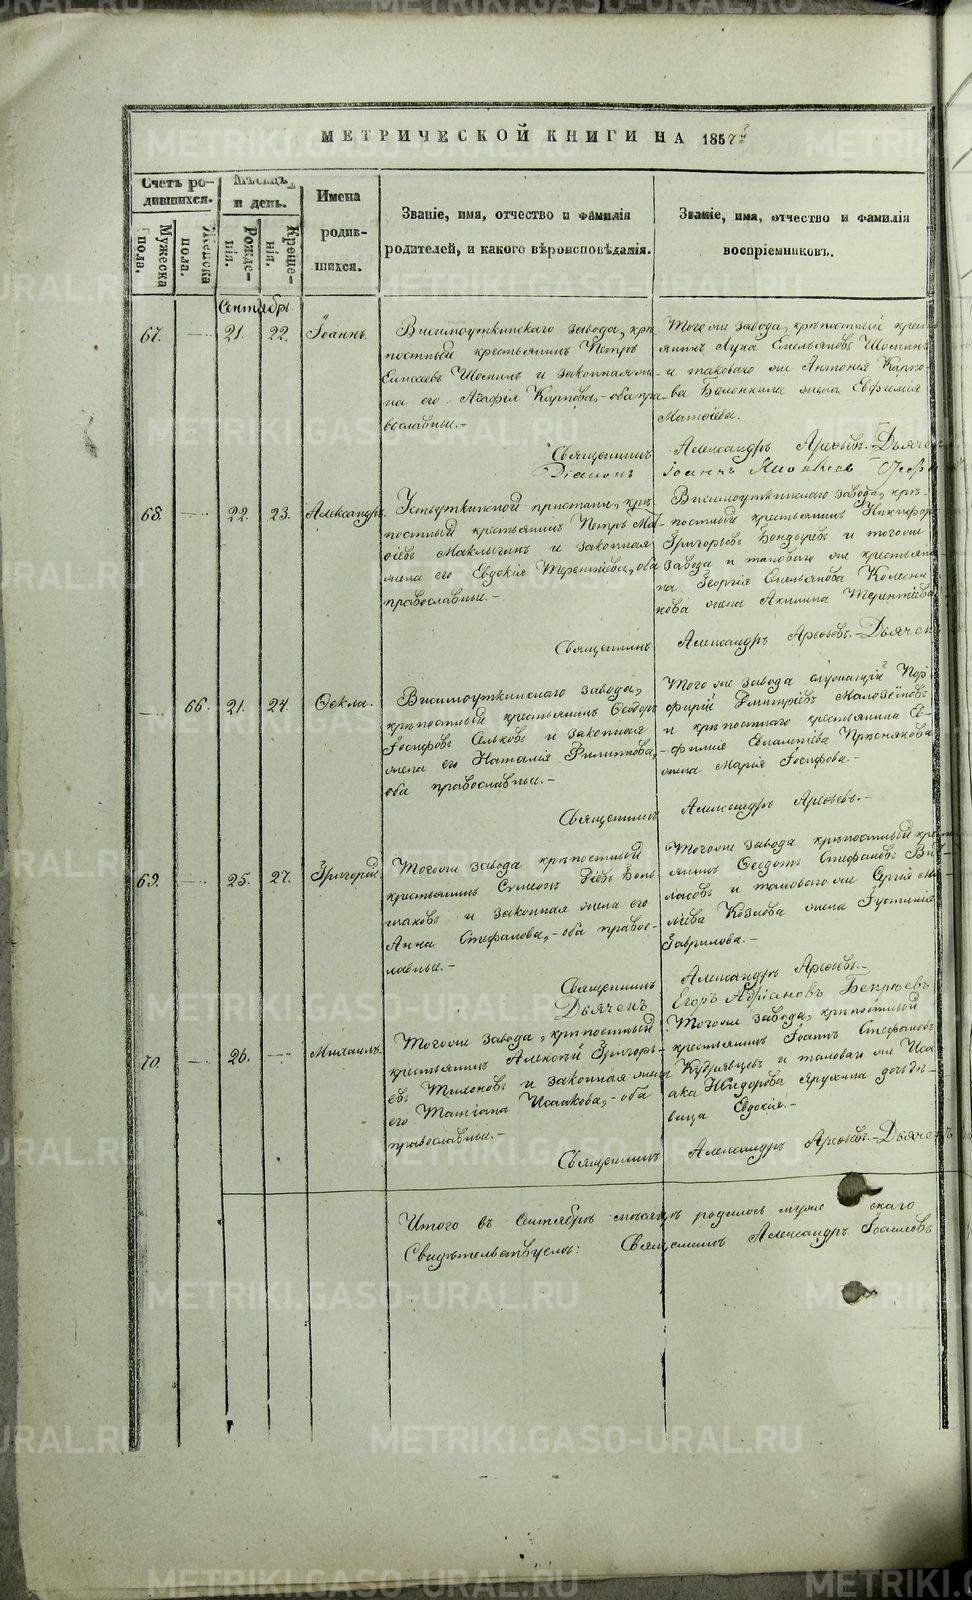 МЕТРИЧЕСКОЙ КНИГИ НА 1857
Счетъ ро-
дившихся.
Мѣсяцъ
и день.
Имена
родив-
шихся.
Званіе, имя, отчество и фамилія
родителей, и какого вѣроисповѣданія.
Званіе, имя, отчество и фамилія
воспріемниковъ.
Мужеска
пола.
Женска
пола.
Рожде-
нія.
Креще-
нія.
Сентябрь
67. 21. 22. Іоаннъ.
Висимоуткинскаго завода, крѣ
постный крестьянинъ Петръ
Елисеевъ и законная же-
на его Агафія Карпова, - оба пра-
вославные. -
Тогоже завода, крѣпостный крест
янинъ Лука Емельяновъ
и таковаго же Антонія Карпо-
ва жена Евфимія
Матѳіева.
Священникъ Александръ Арефьевъ. - Дьячек
Діаконъ Іоаннъ
68. 22. 23. Александръ.
Устьуткинской пристани, крѣ
постный крестьянинъ Петръ Мат-
ѳіевъ Маклыгинъ и законная
жена его Евдокія Терентіева, оба
православные. -
Висимоуткинскаго завода, крѣ-
постный крестьянинъ Никифоръ
Григорьевъ и тогоже
завода и таковаго же крестьяни
на Георгія Емельянова Колесни
кова жена Акилина Терентіева
Священникъ Александръ Арефьевъ. - Дьячек
66. 21. 24. Ѳекла.
Висимоуткинскаго завода,
крѣпостный крестьянинъ Ѳедоръ
Іосифовъ Сельковъ и законная
жена его Наталія Филиппова,
оба православные. -
Того же завода служащій Пор
фирій Дмитріевъ Малоземовъ
и крѣпостнаго крестьянина Ев-
фимія Евлампіева Прѣснякова
жена Марія Іосифова. -
Священникъ Александръ Арефьевъ. -
69. 25. 27. Григорій.
Тогоже завода крѣпостный
крестьянинъ Сумеонъ Боль
шаковъ и законная жена его
Анна Стефанова, - оба правос-
лавные. -
Тогоже завода крѣпостный крест
янинъ Ѳеодотъ Стефановъ
и таковаго же Сергія
Козлова жена Іустинія
Гаврилова. -
Священникъ Александръ Арефьевъ. -
Дьячекъ Егоръ Адріановъ Бекрюевъ
70. 26. Михаилъ.
Тогоже завода, крѣпостный
крестьянинъ Алексѣй Григорь-
евъ Тихоновъ и законная жена
его Татіана Исаакова, - оба
православные. -
Тогоже завода, крѣпостный
крестьянинъ Іоаннъ Стефановъ
Кудрявцевъ и таковаго же Иса
ака дочь дѣ-
вица Евдокія. -
Священникъ Александръ Арефьевъ. - Дьячекъ
Итого въ Сентябрѣ мѣсяцѣ родилось муже скаго
Свидѣтельствуемъ: Священникъ Александръ Іоанновъ